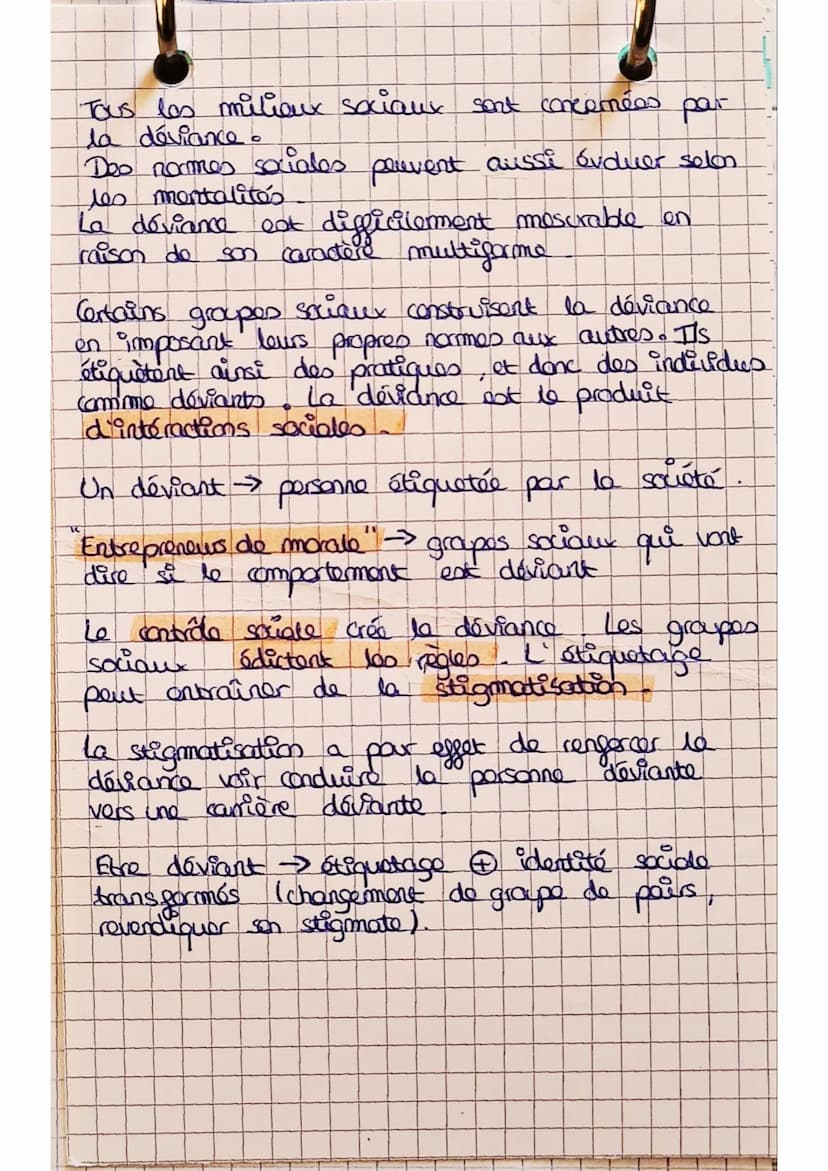 Tous les milieux sociaux sont concernées par
la déviance.
Des normes sociales peuvent aussi évoluer selon
les mentalités.
La déviance est difficilement mesurable en
raison de son caractère multiforme.
Certains groupes sociaux construisent la déviance
en imposant leurs propres normes aux autres. Ils
étiquètent ainsi des pratiques, et donc des individus
comme déviants. La déviance est le produit
d'intéractions sociales.
Un déviant → personne étiquetée par la société.
"Entrepreneurs de morale" → groupes sociaux qui vont
dire si le comportement est déviant
Le contrôle sociale crée la déviance. Les groupes
sociaux édictent les règles. L'étiquetage
peut entraîner de la stigmatisation.
La stigmatisation a par effet de renforcer la
déviance voir conduire la personne déviante
vers une carrière déviante.
Etre déviant → étiquetage ⊕ identité sociale
transformés (changement de groupe de pairs,
revendiquer son stigmate).